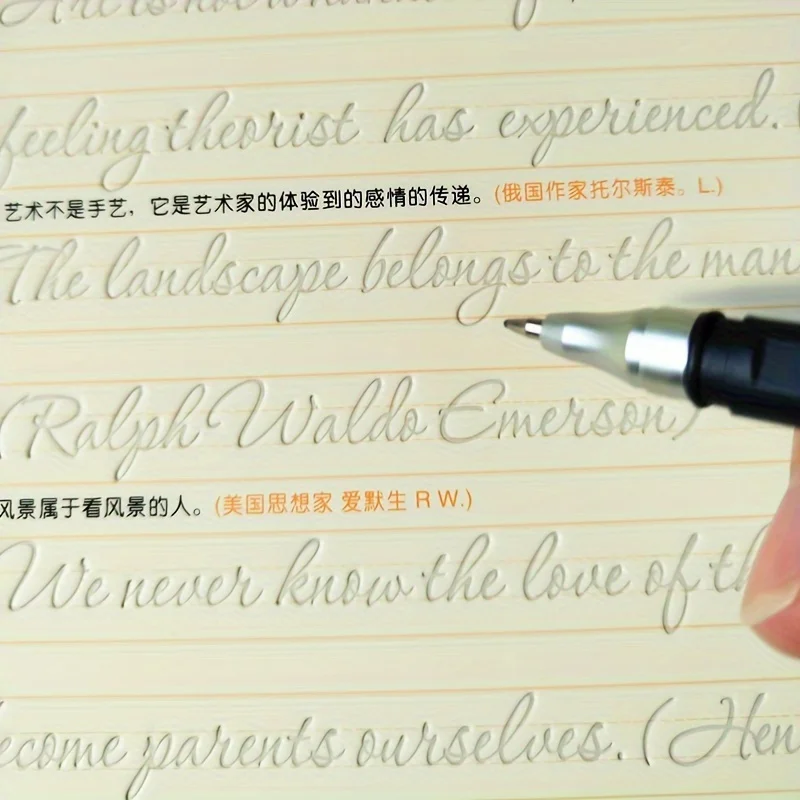 Art is not a handicraft
feeling theorist has experienced. (
艺术不是手艺，它是艺术家的体验到的感情的传递。(俄国作家托尔斯泰。L.)
The landscape belongs to the man
(Ralph Waldo Emerson)
风景属于看风景的人。(美国思想家 爱默生 R W.)
We never know the love of th
ecome parents ourselves. ( Hen